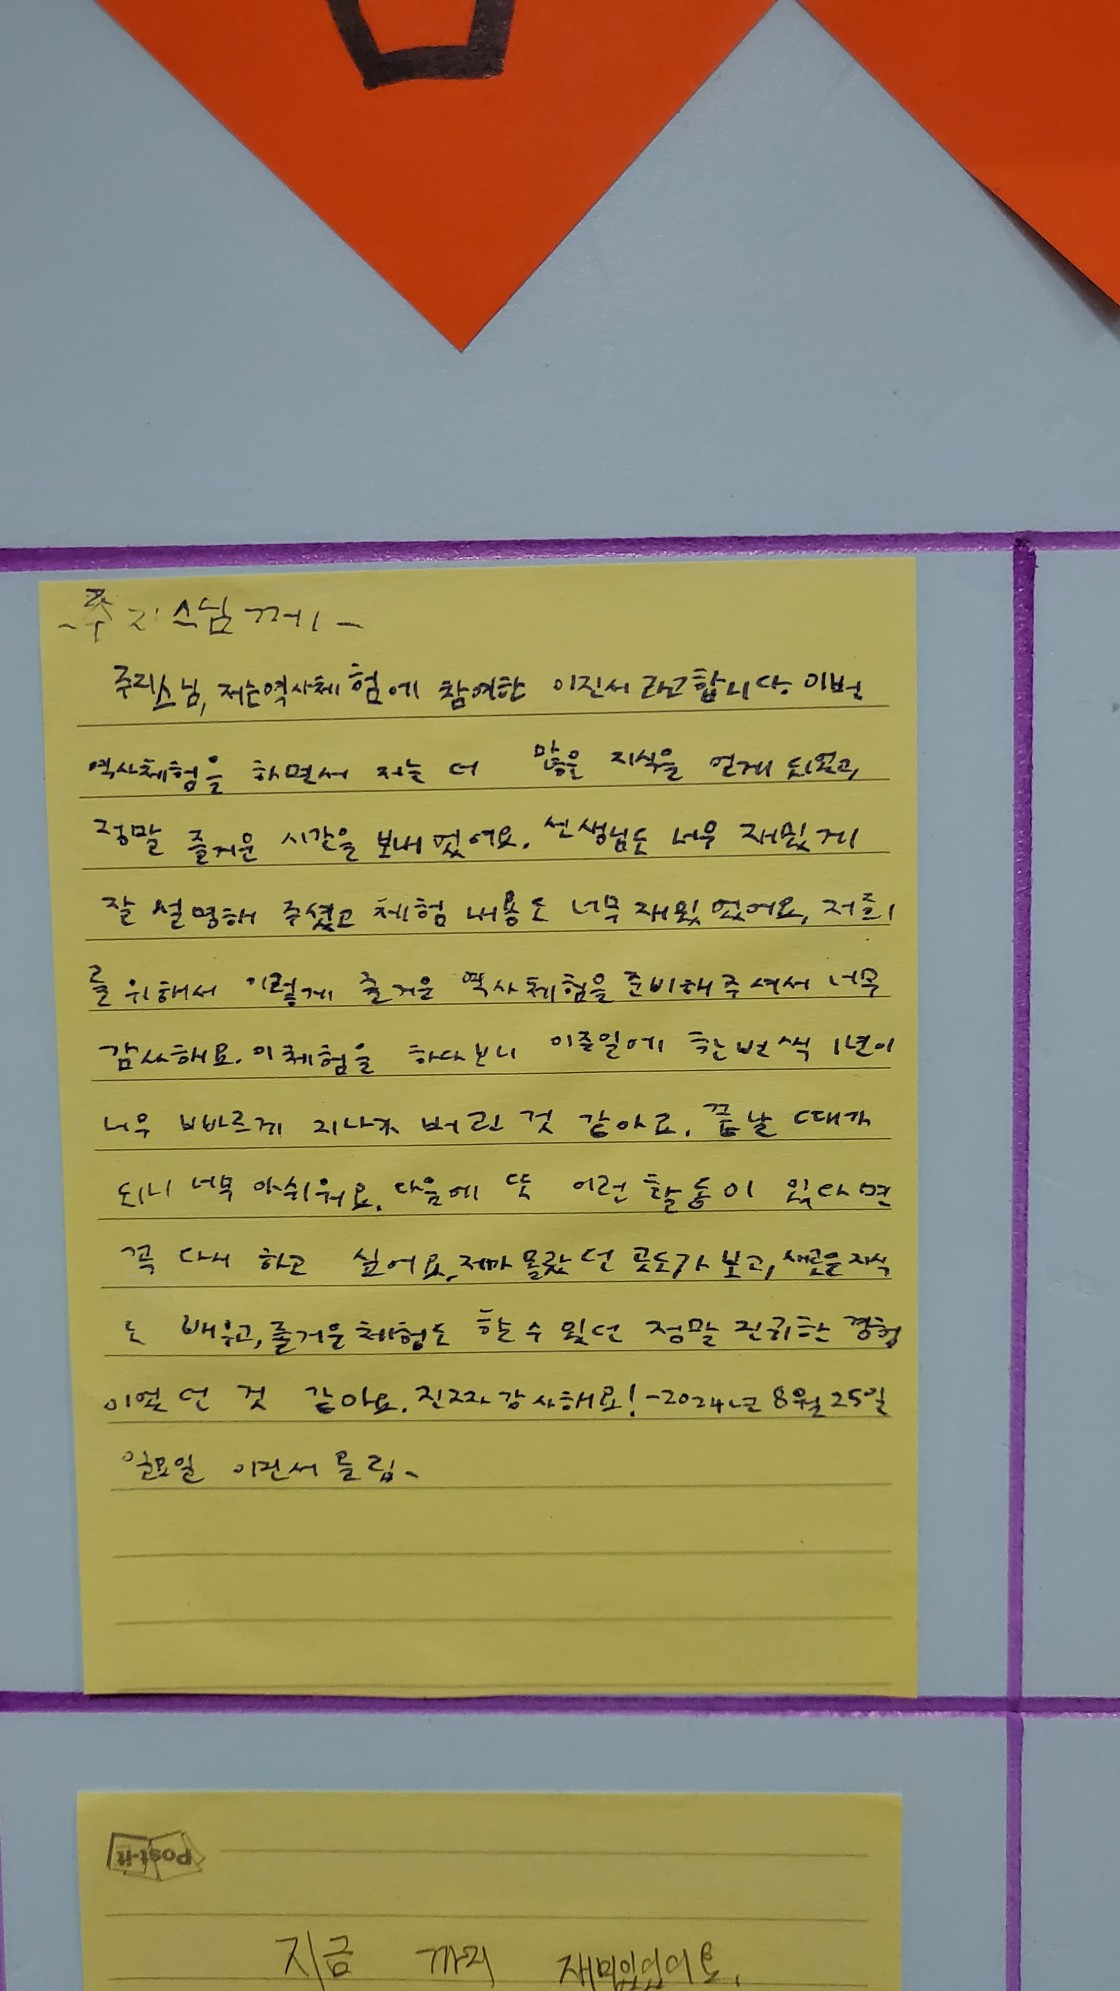 - 주지스님께 -
주지스님, 저는 역사체험에 참여한 이진서라고 합니다 이번
역사체험을 하면서 저는 더 많을 지식을 얻게 되었고,
정말 즐거운 시간을 보내 었어요. 선생님도 너무 재밌게
잘 설명해 주셨고 체험 내용도 너무 재있었어요, 저희
를 위해서 이렇게 즐거운 역사체험을 준비해주셔서 너무
감사해요. 이 체험을 하다보니 이주일에 한번씩 1년이
너무 빠르게 지나가 버린 것 같아요. 끝날 때가
되니 너무 아쉬워요. 다음에 또 이런 활동이 있다면
꼭 다시 하고 싶어요, 제가 몰랐던 곳도 가 보고, 새로운 지식
도 배우고, 즐거운 체험도 할 수 있던 정말 진귀한 경험
이었던 것 같아요. 진짜 감사해요! -2024년 8월 25일
일요일 이진서 올림-
Post-it
지금 까지 재미있었어요.